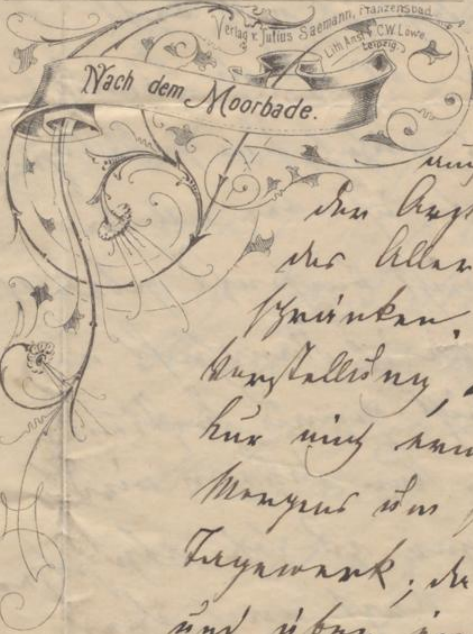 Verlag v. Julius Saemann, Franzensbad.
Lith. Anst. v. C.W. Löwe, Leipzig.
Nach dem Moorbade.
der
des Aller
schränken,
Vorstellung,
Kur mich
Morgens um
Tagewerk; da
und über